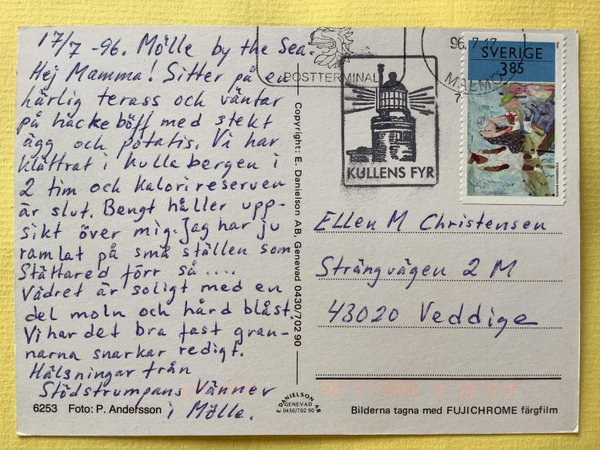 17/7 -96. Mölle by the Sea.
Hej Mamma! Sitter på en
härlig terass och väntar
på hackeböff med stekt
ägg och potatis. Vi har
klättrat i Kullabergen i
2 tim och Kalorireserven
är slut. Bengt håller upp-
sikt över mig. Jag har ju
ramlat på små ställen som
Stättared förr så....
Vädret är soligt med en
del moln och hård blåst.
Vi har det bra fast gran-
narna snarkar redigt.
Hälsningar från
Stödstrumpans Vänner
i Mölle.
6253 Foto: P. Andersson
Copyright: E. Danielson AB, Genevad 0430/702 90
E. DANIELSON AB
GENEVAD
0430/702 90
POSTTERMINAL
KULLENS FYR
96.7.17
MALMÖ
SVERIGE
3.85
Ellen M Christensen
Strängvägen 2 M
43020 Veddige
Bilderna tagna med FUJICHROME färgfilm